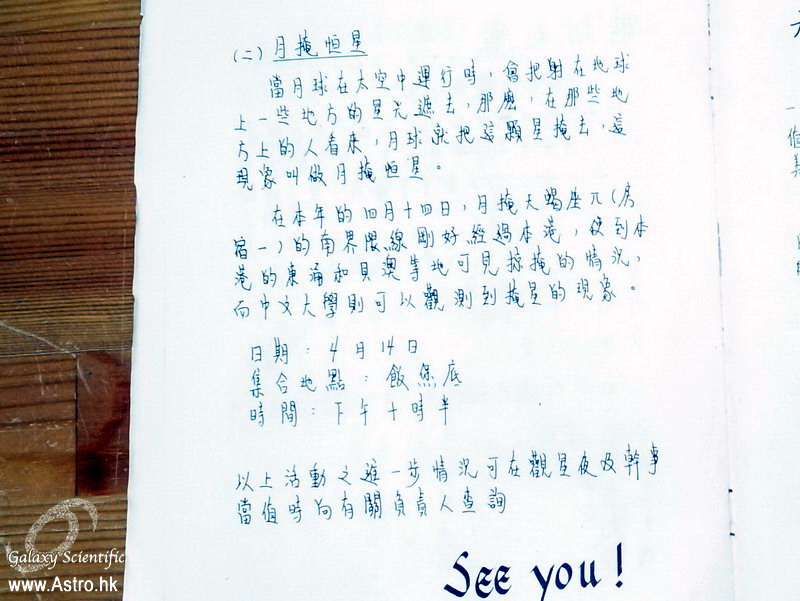 (二) 月掩恒星
當月球在太空中運行時，會把射在地球
上一些地方的星光遮去，那麽，在那些地
方上的人看來，月球就把這顆星掩去，這
現象叫做月掩恒星。
在本年的四月十四日，月掩天蝎座π(房
宿一)的南界限線剛好經過本港，使到本
港的東涌和貝澳等地可見掠掩的情況，
而中文大學則可以觀測到掩星的現象。
日期：4月14日
集合地點：飯煲底
時間：下午十時半
以上活動之進一步情況可在觀星夜及幹事
當值時向有關負責人查詢
See you!
Galaxy Scientific
www.Astro.hk